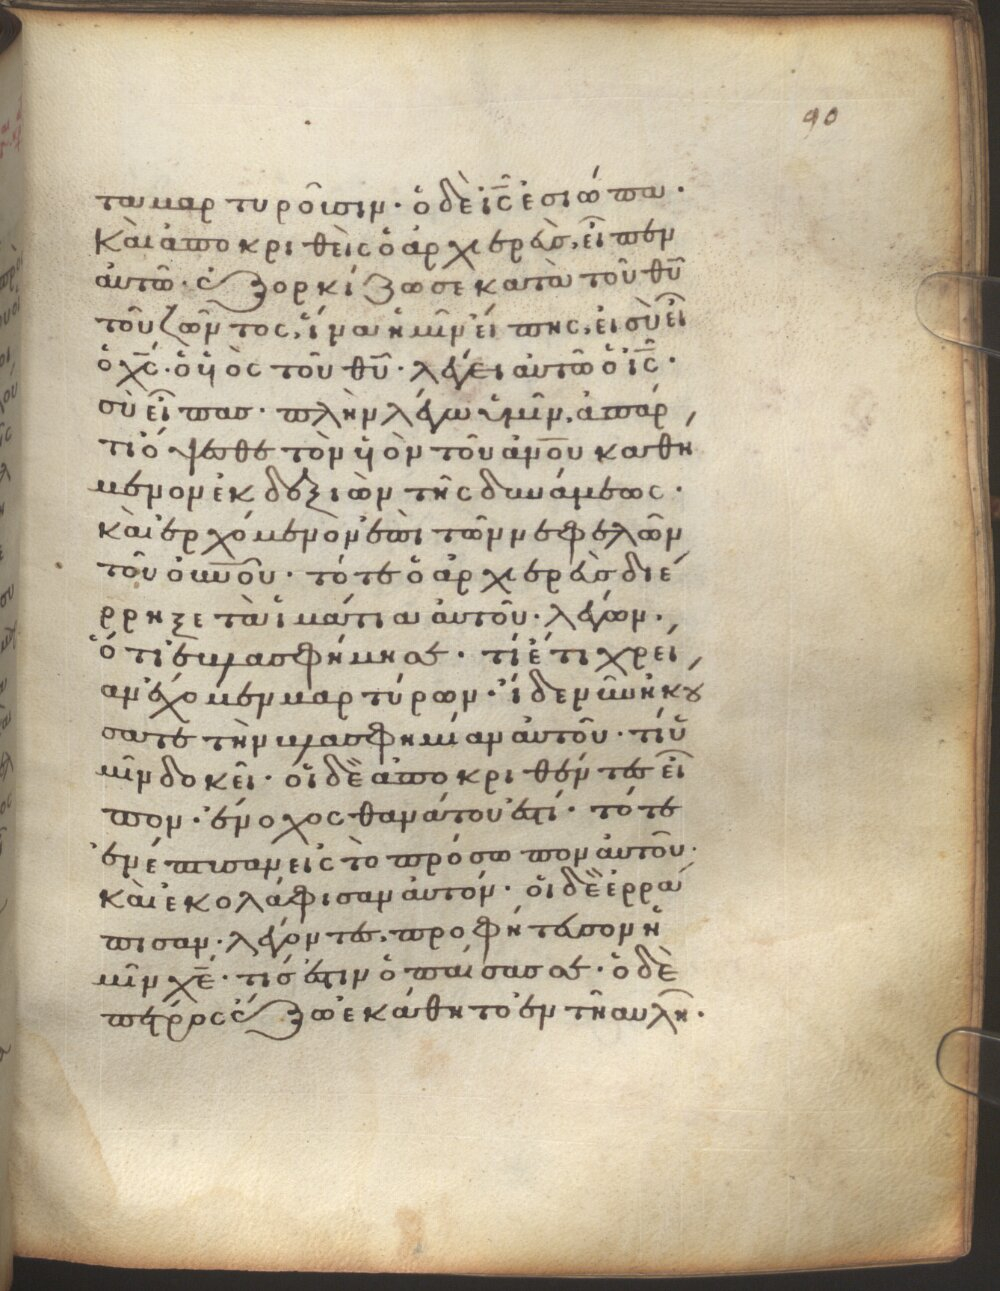 90
ταμαρτυροῦσιν· ὁ δὲ ις̅ ἐσιώπα·
Καὶ ἀποκριθεὶς ὁ ἀρχιερεὺς, εἶπεν
αὐτῶ· ἐξορκίζω σε κατὰ τοῦ θυ̅
τοῦ ζῶντος, ἵνα ἡμῖν εἴπης, εἰ σὺ εἶ
ὁ χς̅· ὁ ὑιὸς τοῦ θυ̅· λέγει αὐτῶ ὁ ις̅·
σὺ εἶπας· πλὴν λέγω ὑμῖν, ἀπάρ
τι ὄψεσθε τὸν ὑιὸν τοῦ ανου̅ καθή
μενον ἐκ δεξιῶν τῆς δυνάμεως·
καὶ ἐρχόμενον ἐπὶ τῶν νεφελῶν
τοῦ ουνου̅· τότε ὁ ἀρχιερεὺς διέ
ρρηξε τὰ ἱμάτια αὐτοῦ· λέγων·
ὅτι ἐβλασφήμησε· τί ἔτι χρεί
αν ἔχομεν μαρτύρων· ἴδε νῦν ἠκού
σατε τὴν βλασφημίαν αὐτοῦ· τί ὑ
μῖν δοκεῖ· οἱ δὲ ἀποκριθέντες εἶ
πον· ἔνοχος θανάτου ἐστί· τότε
ἐνέπτυσαν εἰς τὸ πρόσωπον αὐτοῦ·
καὶ ἐκολάφισαν αὐτόν· οἱ δὲ ἐρρά
πισαν· λέγοντες, προφήτευσον ἡ
μῖν χε̅· τίς ἐστιν ὁ παίσας σε· ὁ δὲ
πέτρος ἔξω ἐκάθητο ἐν τῆ αυλῆ·